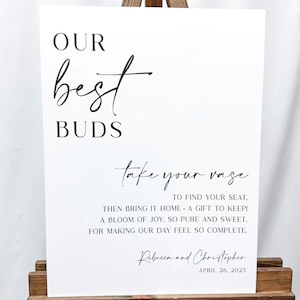 OUR
best
BUDS
take your vase
TO FIND YOUR SEAT,
THEN BRING IT HOME - A GIFT TO KEEP!
A BLOOM OF JOY, SO PURE AND SWEET,
FOR MAKING OUR DAY FEEL SO COMPLETE.
Rebecca and Christopher
APRIL 26, 2025